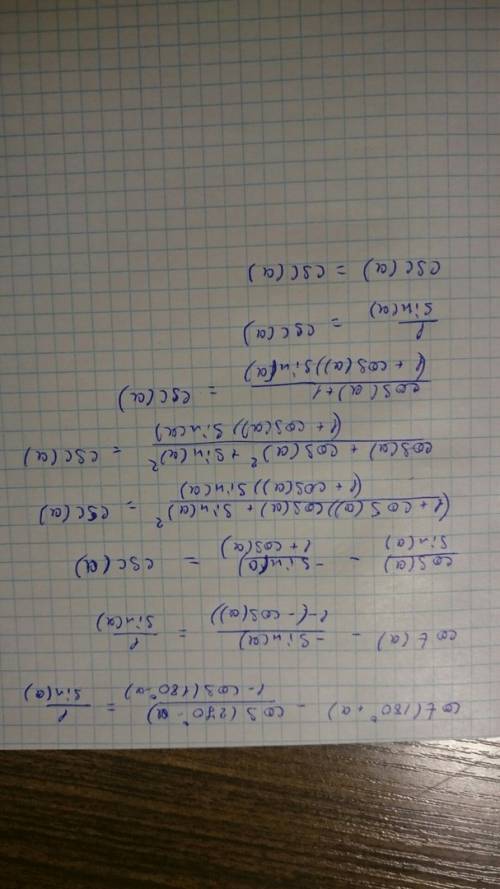 cot(180°+a) - cos(270°-a)/(1-cos(180°-a)) = 1/sin(a)
cot(a) - -sin(a)/(1-(-cos(a))) = 1/sin(a)
cos(a)/sin(a) - -sin(a)/(1+cos(a)) = csc(a)
(1+cos(a))cos(a)+sin(a)²/(1+cos(a))sin(a) = csc(a)
cos(a)+cos(a)²+sin(a)²/(1+cos(a))sin(a) = csc(a)
cos(a)+1/(1+cos(a))sin(a) = csc(a)
1/sin(a) = csc(a)
csc(a) = csc(a)